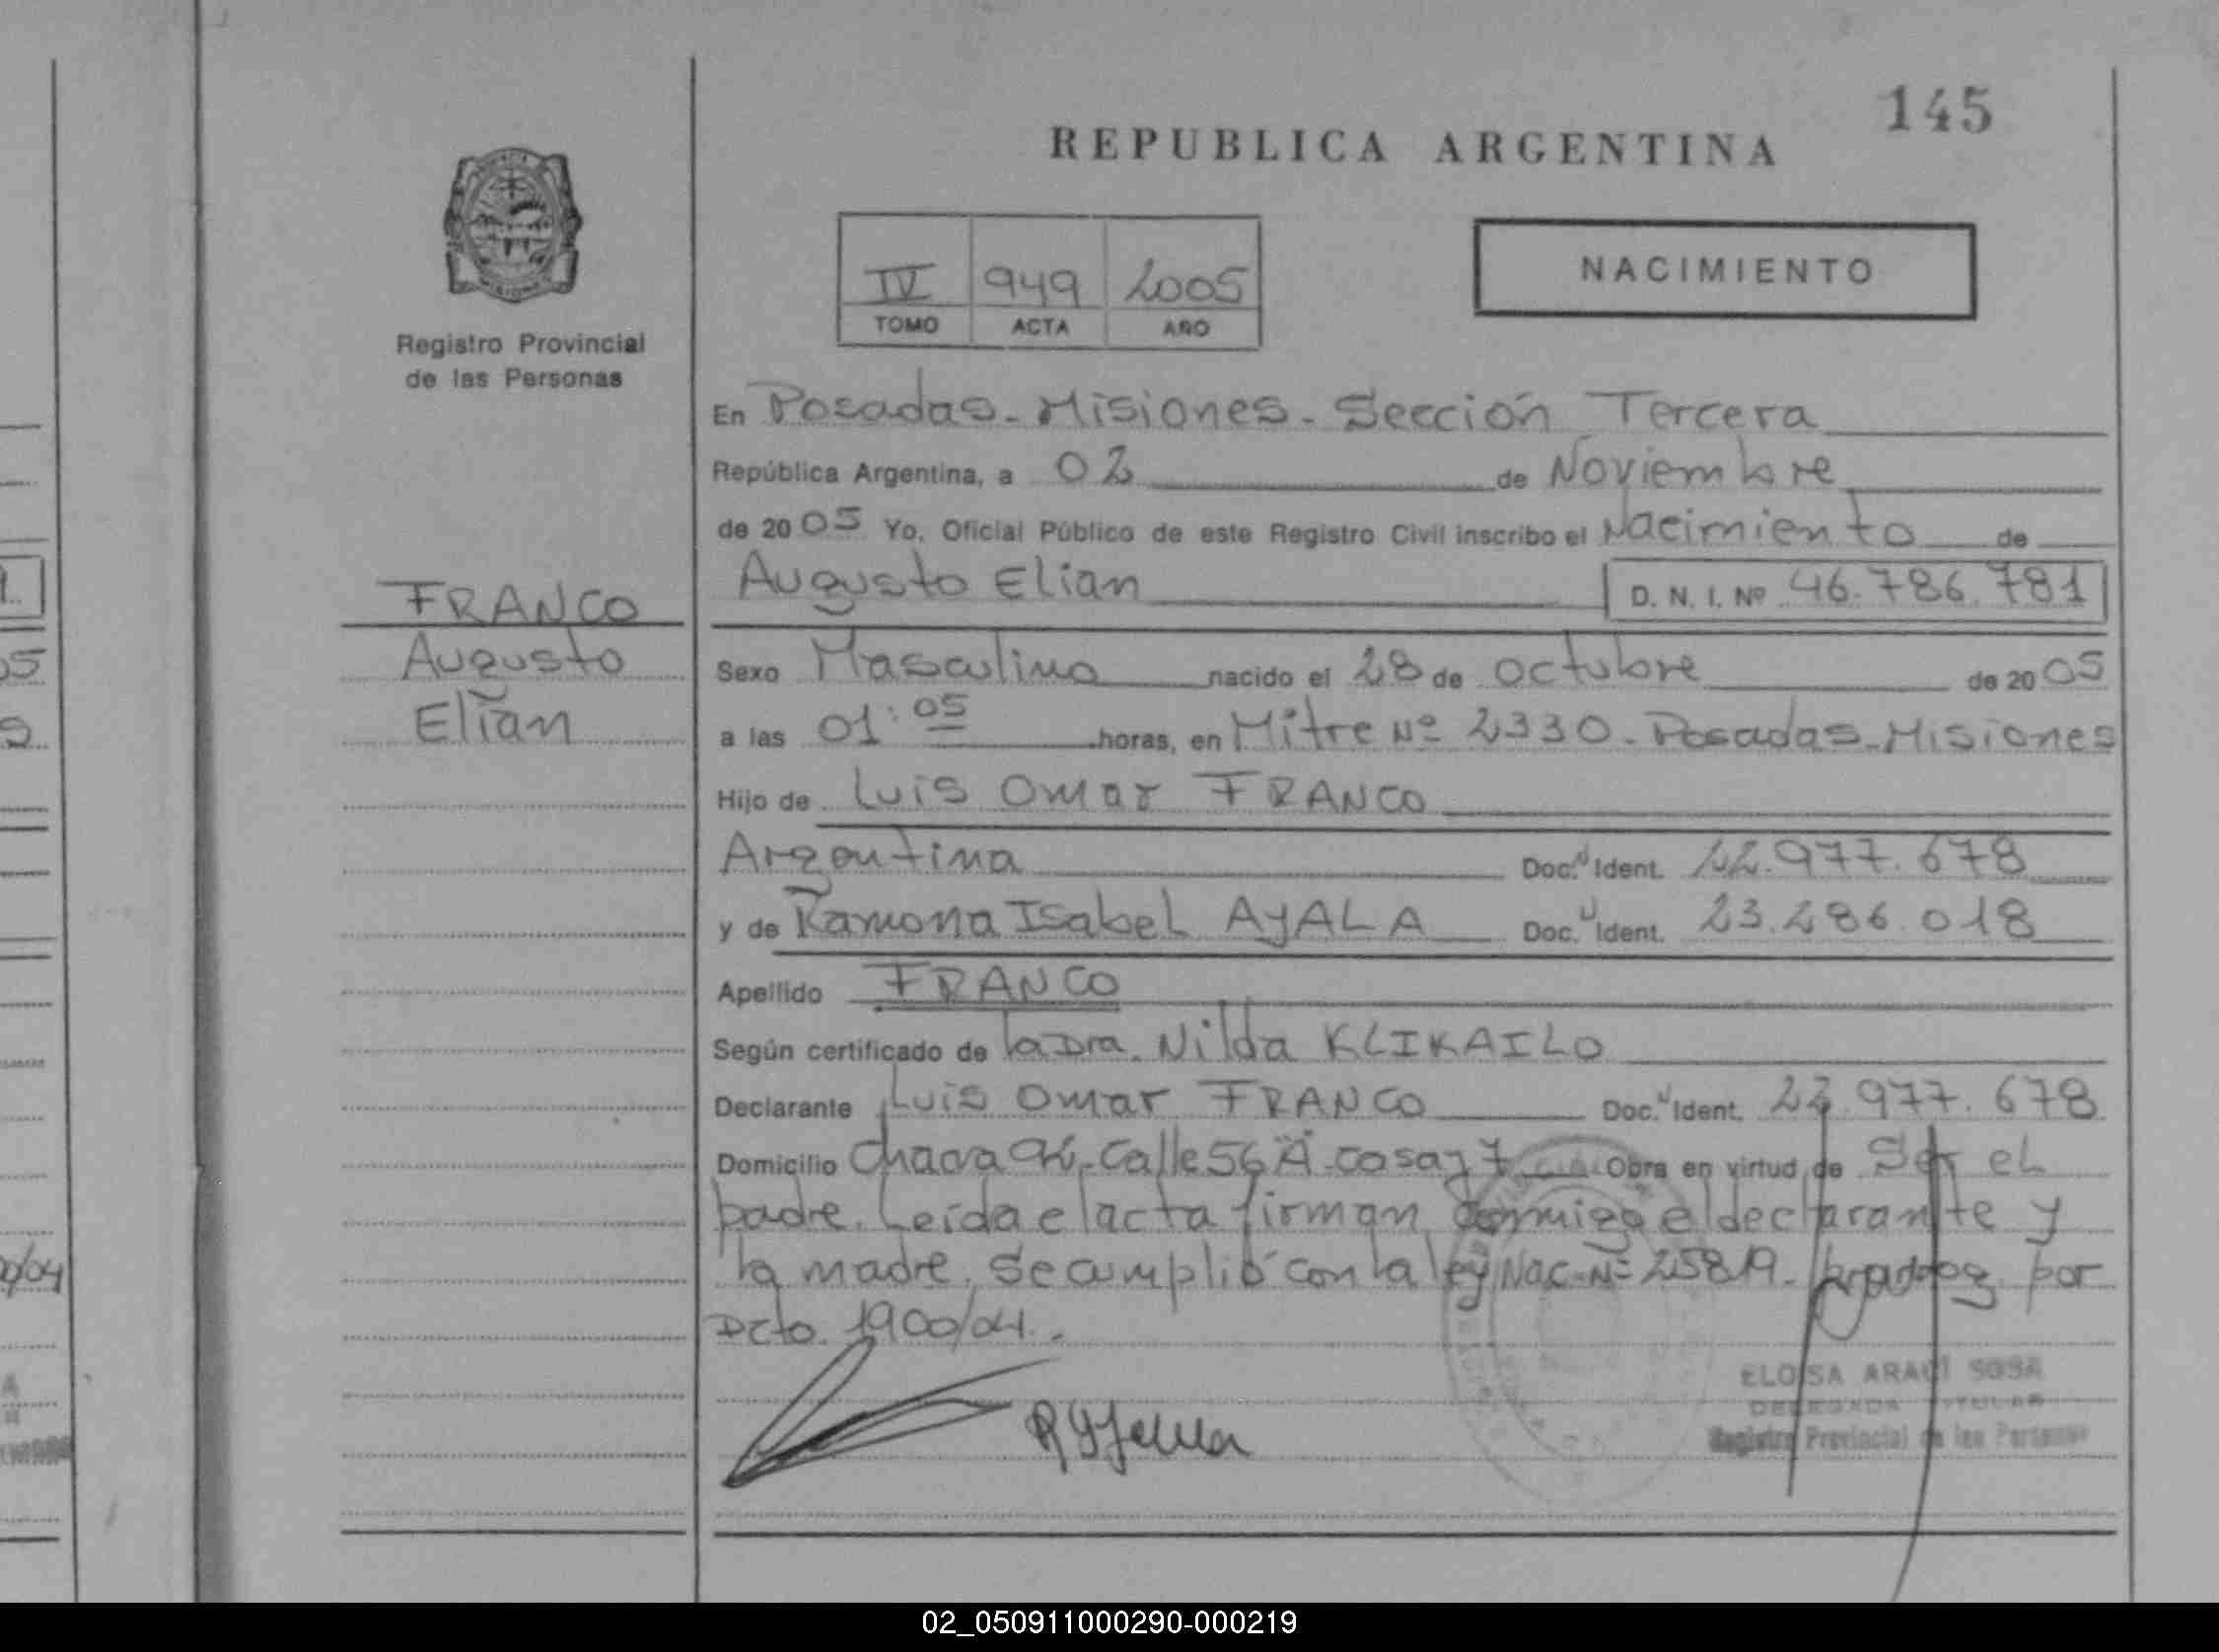 145
REPUBLICA ARGENTINA
NACIMIENTO
IV 949 2005
TOMO ACTA AÑO
Registro Provincial
de las Personas
En Posadas - Misiones - Sección Tercera
República Argentina, a 02 de Noviembre
de 2005 Yo, Oficial Público de este Registro Civil inscribo el Nacimiento de
Augusto Elian D. N. I. Nº 46.786.781
FRANCO
Augusto
Elian
Sexo Masculino nacido el 28 de Octubre de 2005
a las 01:05 horas, en Mitre Nº 2330 - Posadas - Misiones
Hijo de Luis Omar FRANCO
Argentina Doc. Ident. 22.977.678
y de Ramona Isabel AyALA Doc. Ident. 23.286.018
Apellido FRANCO
Según certificado de la Dra. Nilda KLIKAILO
Declarante Luis Omar FRANCO Doc. Ident. 22.977.678
Domicilio Chacra Calle 56 "A" - casa 7 Obra en virtud de Ser el
padre. Leída el acta firman conmigo el declarante y
la madre. Se cumplió con la ley Nac. Nº 25819 - por
Dcto. 1900/04.
ELOISA ARACI SOSA
DELEGADA TITULAR
Registro Provincial de las Personas
05
0/04
02_050911000290-000219